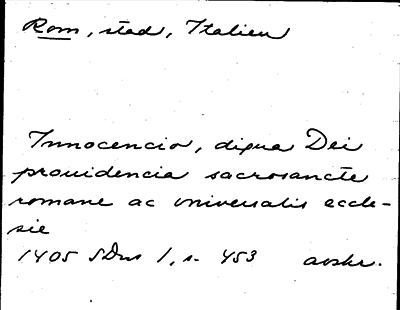 Rom, stad, Italien
Innocencio, digna Dei
prouidencia sacrosancte
romane ac vniuersalis eccle-
sie
1405 SDns 1, s. 453 avskr.